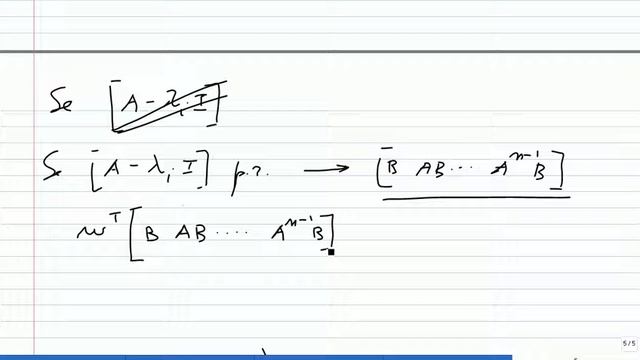 Se [A - λᵢ I]
Se [A - λᵢ I] p.r. → [B AB ... Aⁿ⁻¹B]
wᵀ [B AB .... Aⁿ⁻¹B]
5/5